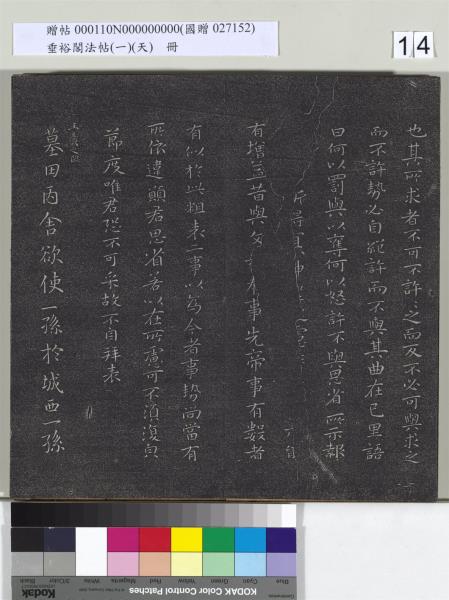 贈帖 000110N000000000(國贈 027152)
垂裕閣法帖(一)(天) 冊
14
也其所求者不可不許之而反不必可與求之
而不許勢必自絕許而不與其曲在己里語
曰何以罰與以奪何以怒許不與思省所示報
有增益昔與文 事先帝事有數者
有似於此粗表二事以為今者事勢尚當有
所依違願君思省若以在所慮可不須復貌
節度唯君恐不可采故不自拜表
墓田丙舍欲使一孫於城西一孫
Blue Cyan Green Yellow Red Magenta White 3/Color Black
Kodak KODAK Color Control Patches